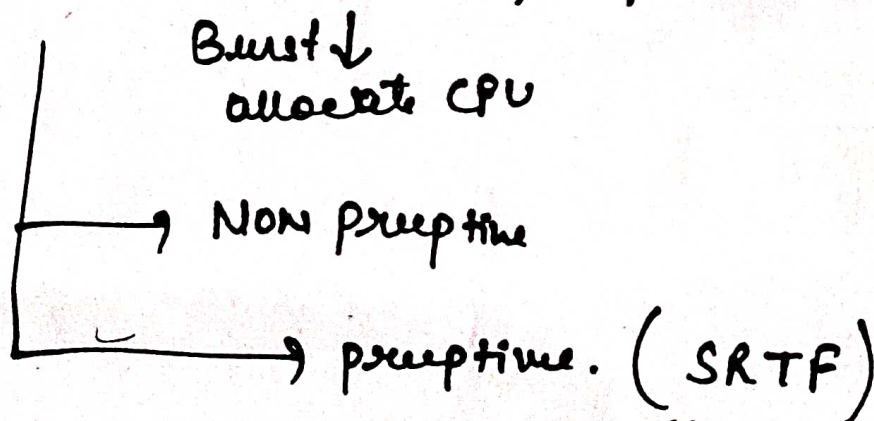 Burst ↓
allocate CPU
→ NON Preeptive
→ preeptive. ( SRTF )